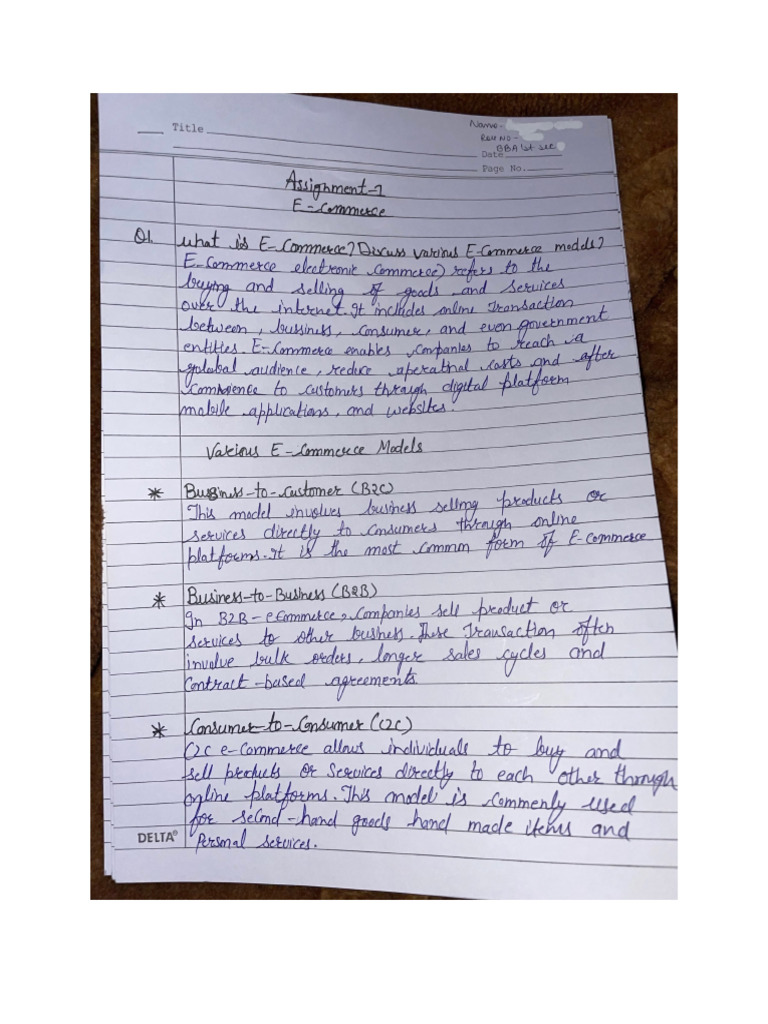 Title
Name-
Roll No-
BBA 1st sec
Date
Page No.
Assignment-1
E-Commerce
Q1. What is E-Commerce? Discuss various E-Commerce models?
E-Commerce electronic commerce) refers to the
buying and selling of goods and services
over the internet. It includes online Transaction
between, bussiness, consumer, and even government
entities. E-Commerce enables companies to reach a
golabal audience, reduce aperathal costs and after
to customers through digital platform
mobile applications, and websites.
Various E-Commerce Models
* Business-to-Customer (B2C)
This model involves business selling products or
services directly to consumers through online
platforms. It is the most common form of E-Commerce
* Business-to-Business (B2B)
In B2B-eCommerce, Companies sell product or
services to other business. These Transaction often
involve bulk orders, longer sales cycles and
Contract-based agreements.
* Consumer-to-Consumer (C2C)
C2C e-Commerce allows individuals to buy and
sell products or Services directly to each other through
online platforms. This model is commenly used
for second-hand goods hand made items and
Personal services.
DELTA®